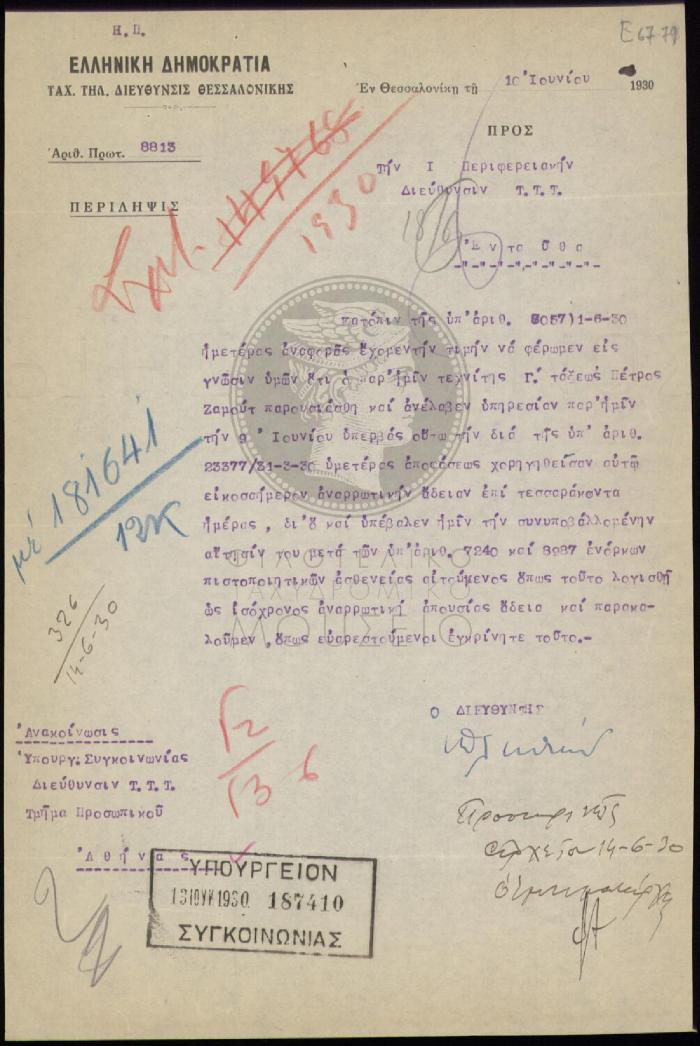 Η.Π.
Ε 67-79
ΕΛΛΗΝΙΚΗ ΔΗΜΟΚΡΑΤΙΑ
ΤΑΧ. ΤΗΛ. ΔΙΕΥΘΥΝΣΙΣ ΘΕΣΣΑΛΟΝΙΚΗΣ
Ἐν Θεσσαλονίκῃ τῇ 10 Ἰουνίου 1930
Ἀριθ. Πρωτ. 8813
ΠΡΟΣ
Τήν Ι Περιφερειακήν
Διεύθυνσιν Τ.Τ.Τ.
ΠΕΡΙΛΗΨΙΣ
Ἐνταῦθα
1930
18/6
κατόπιν τῆς ὑπ'ἀριθ. 8057)1-6-30
ἡμετέρας ἀναφορᾶς ἔχομεντήν τιμήν νά φέρωμεν εἰς
γνῶσιν ὑμῶν ὅτι ὁ παρ'ἡμῖν τεχνίτης Γ.' τάξεως Πέτρος
Ζαμούτ παρουσιάσθη καί ἀνέλαβεν ὑπηρεσίαν παρ'ἡμῖν
τήν 9 Ἰουνίου ὑπερβάς οὕτω τήν διά τῆς ὑπ' ἀριθ.
23377/31-3-30 ὑμετέρας ἀποφάσεως χορηγηθεῖσαν αὐτῷ
εἰκοσαήμερον ἀναρρωτικήν ἄδειαν ἐπί τεσσαράκοντα
ἡμέρας , δι'ὅ καί ὑπέβαλεν ἡμῖν τήν συνυποβάλλομένην
αἴτησίν του μετά τῶν ὑπ'ἀριθ. 7240 καί 8987 ἐνόρκων
πιστοποιητικῶν ἀσθενείας αἰτούμενος ὅπως τοῦτο λογισθῇ
ὡς ἰσόχρονος ἀναρρωτική ἀπουσίας ἄδεια καί παρακα-
λοῦμεν ,ὅπως εὐαρεστούμενοι ἐγκρίνητε τοῦτο.-
μέ 181641
12Κ
326
14-6-30
ΦΙΛΟΤΕΛΙΚΟ
ΤΑΧΥΔΡΟΜΙΚΟ
ΜΟΥΣΕΙΟ
Ο ΔΙΕΥΘΥΝΤΗΣ
Γ2
Γ3 6
Ἀνακοίνωσις
Ὑπουργ. Συγκοινωνίας
Διεύθυνσιν Τ.Τ.Τ.
Τμῆμα Προσωπικοῦ
Ἀθήνας
14-6-30
ΥΠΟΥΡΓΕΙΟΝ
13 ΙΟΥΝ 1930 187410
ΣΥΓΚΟΙΝΩΝΙΑΣ